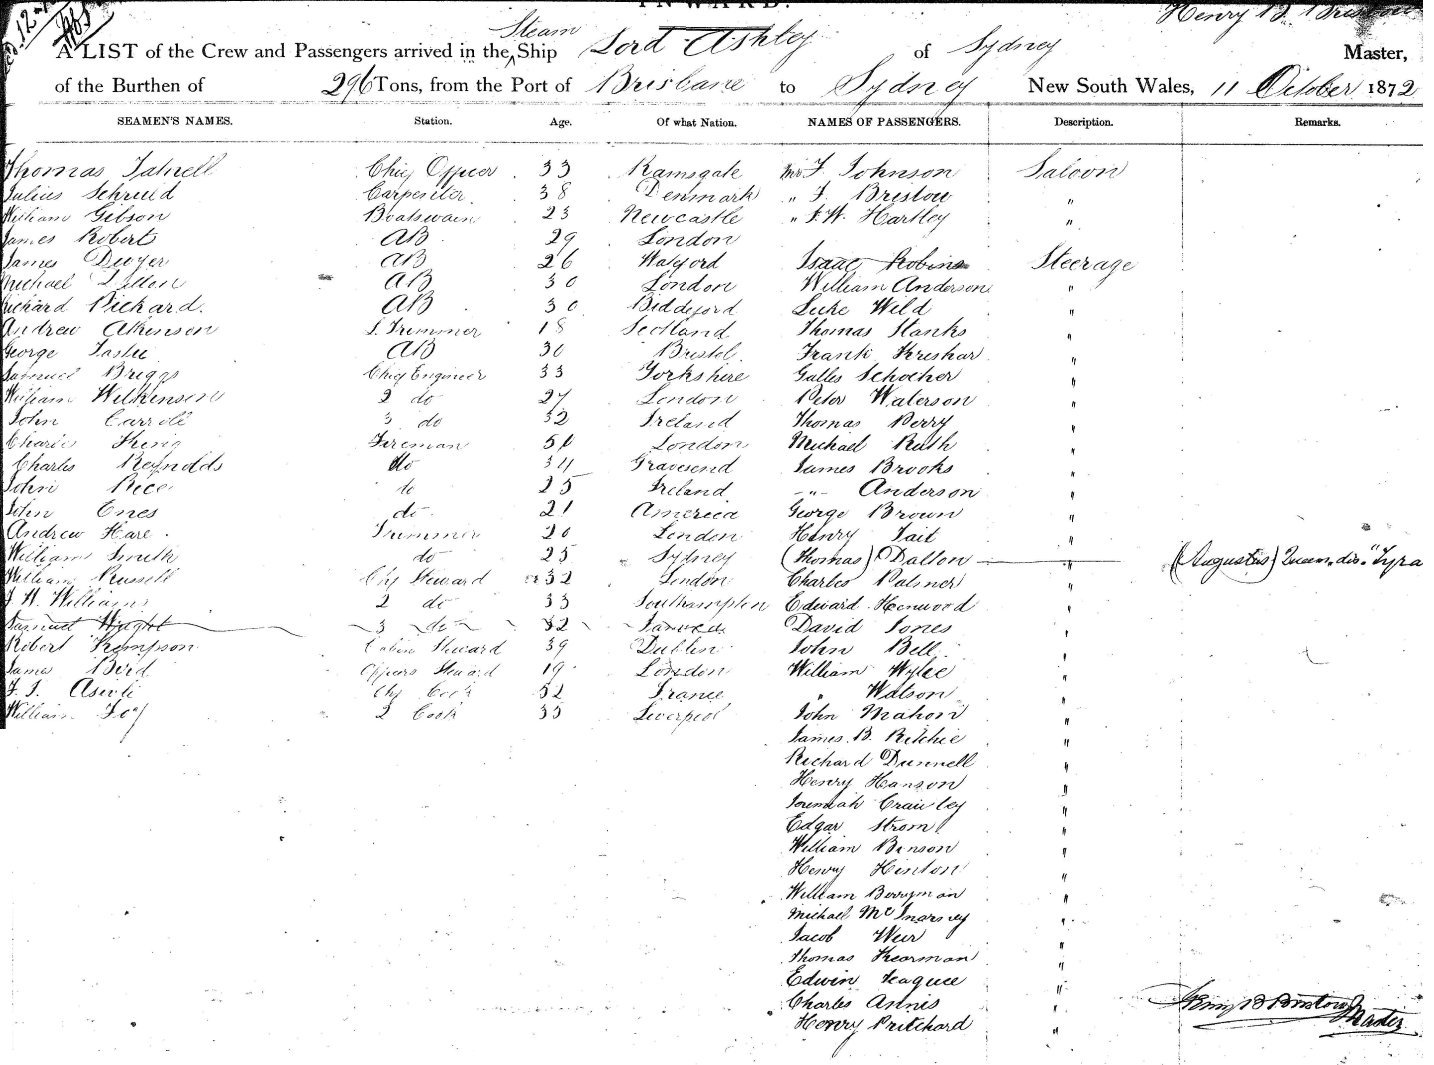 INWARD.
Henry B. Bristow
A LIST of the Crew and Passengers arrived in the Steam Ship Lord Ashley of Sydney Master,
of the Burthen of 296 Tons, from the Port of Brisbane to Sydney New South Wales, 11 October 1872
SEAMEN'S NAMES. Station. Age. Of what Nation. NAMES OF PASSENGERS. Description. Remarks.
Thomas Chief Officer 33 Ramsgate Mr F Johnson Saloon
Julius Schruid Carpenter 38 Denmark " F Bristow "
William Gibson Boatswain 23 Newcastle " F. W. Hartley "
James Robert AB 29 London
James Dwyer AB 26 Isaac Robins Steerage
Michael AB 30 London William Anderson "
Richard Pickard. AB 30 Biddeford Luke Wild "
Andrew Atkinson S. Trimmer 18 Scotland Thomas Stanks "
George AB 30 Bristol Frank Kreshar "
Samuel Briggs Chief Engineer 33 Yorkshire Galles Schocher "
William Wilkinson 2 do 27 London Peter Waterson "
John Carroll 3 do 32 Ireland Thomas Perry "
Charles Fireman London Michael Ruth "
Charles Reynolds do 34 Gravesend James Brooks "
John Rice do 25 Ireland -"- Anderson "
John Ones do 21 America George Brown "
Andrew Hare. Trimmer 20 London Henry Tait "
William Smith do 25 Sydney (Thomas) Dalton (Augustus) Queen. dis. "Tyra
William Russell Chf Steward 32 London Charles Palmer "
F W. Williams 2 do 33 Southampton Edward Henwood "
Samuel Wright 3 do 32 David Jones "
Robert Kempson Cabin Steward 39 Dublin John Bell "
James Bird Officers Steward 19 London William Wylie "
F. T. Chf Cook 52 France " Watson "
William Foy 2 Cook 35 Liverpool John Mahon "
James B. Ritchie "
Richard Dunnell "
Henry Hanson "
Jeremiah Crawley "
Edgar Strom "
William Benson "
Henry Hinton "
William Berryman "
Michael McInarney "
Jacob Weir "
Thomas Kearman "
Edwin Teague "
Charles Annis "
Henry Pritchard "
Henry B Bristow
Master